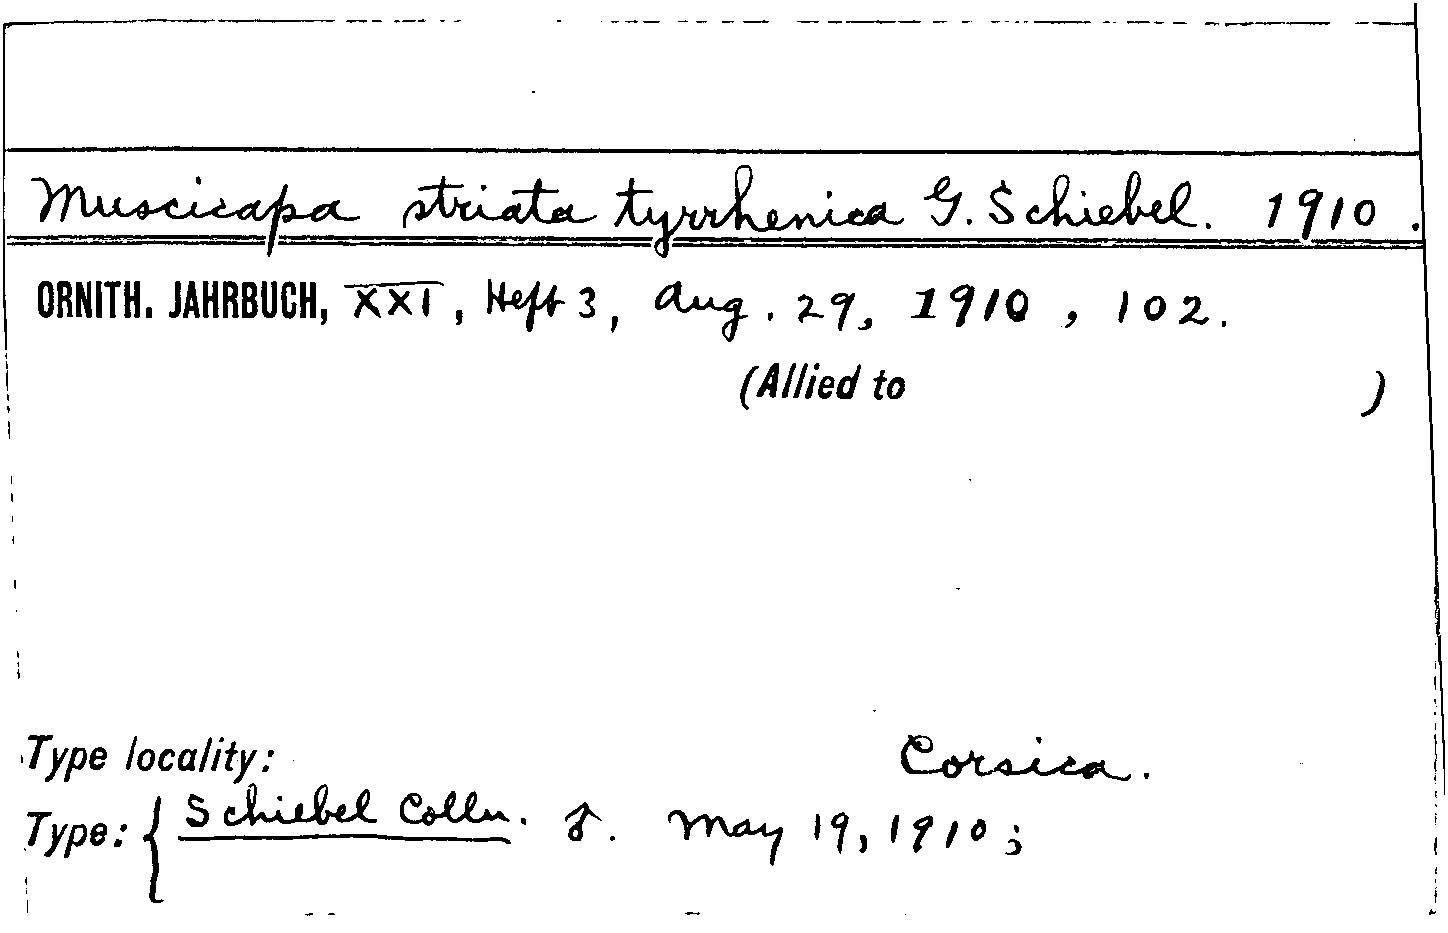 Muscicapa striata tyrrhenica G. Schiebel. 1910.
ORNITH. JAHRBUCH, XXI, Heft 3, Aug. 29, 1910, 102.
(Allied to )
Type locality: Corsica.
Type: { Schiebel Colln. ♂. May 19, 1910;